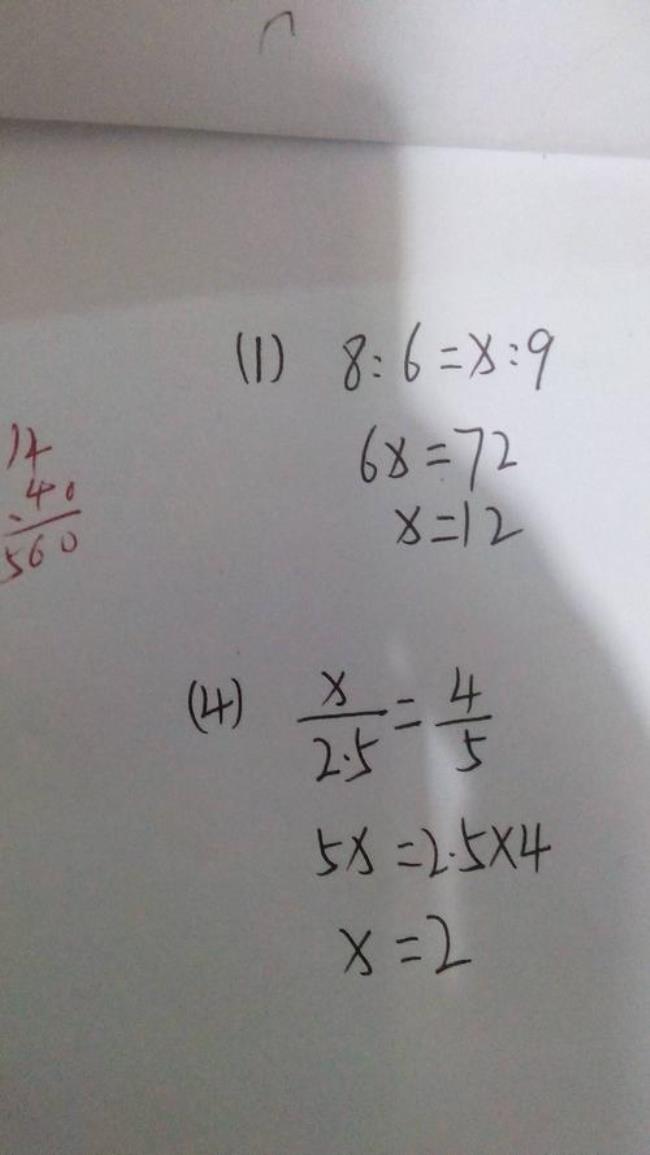 (1) 8:6=x:9
6x=72
x=12
14
40
560
(4) x/2.5=4/5
5x=2.5×4
x=2